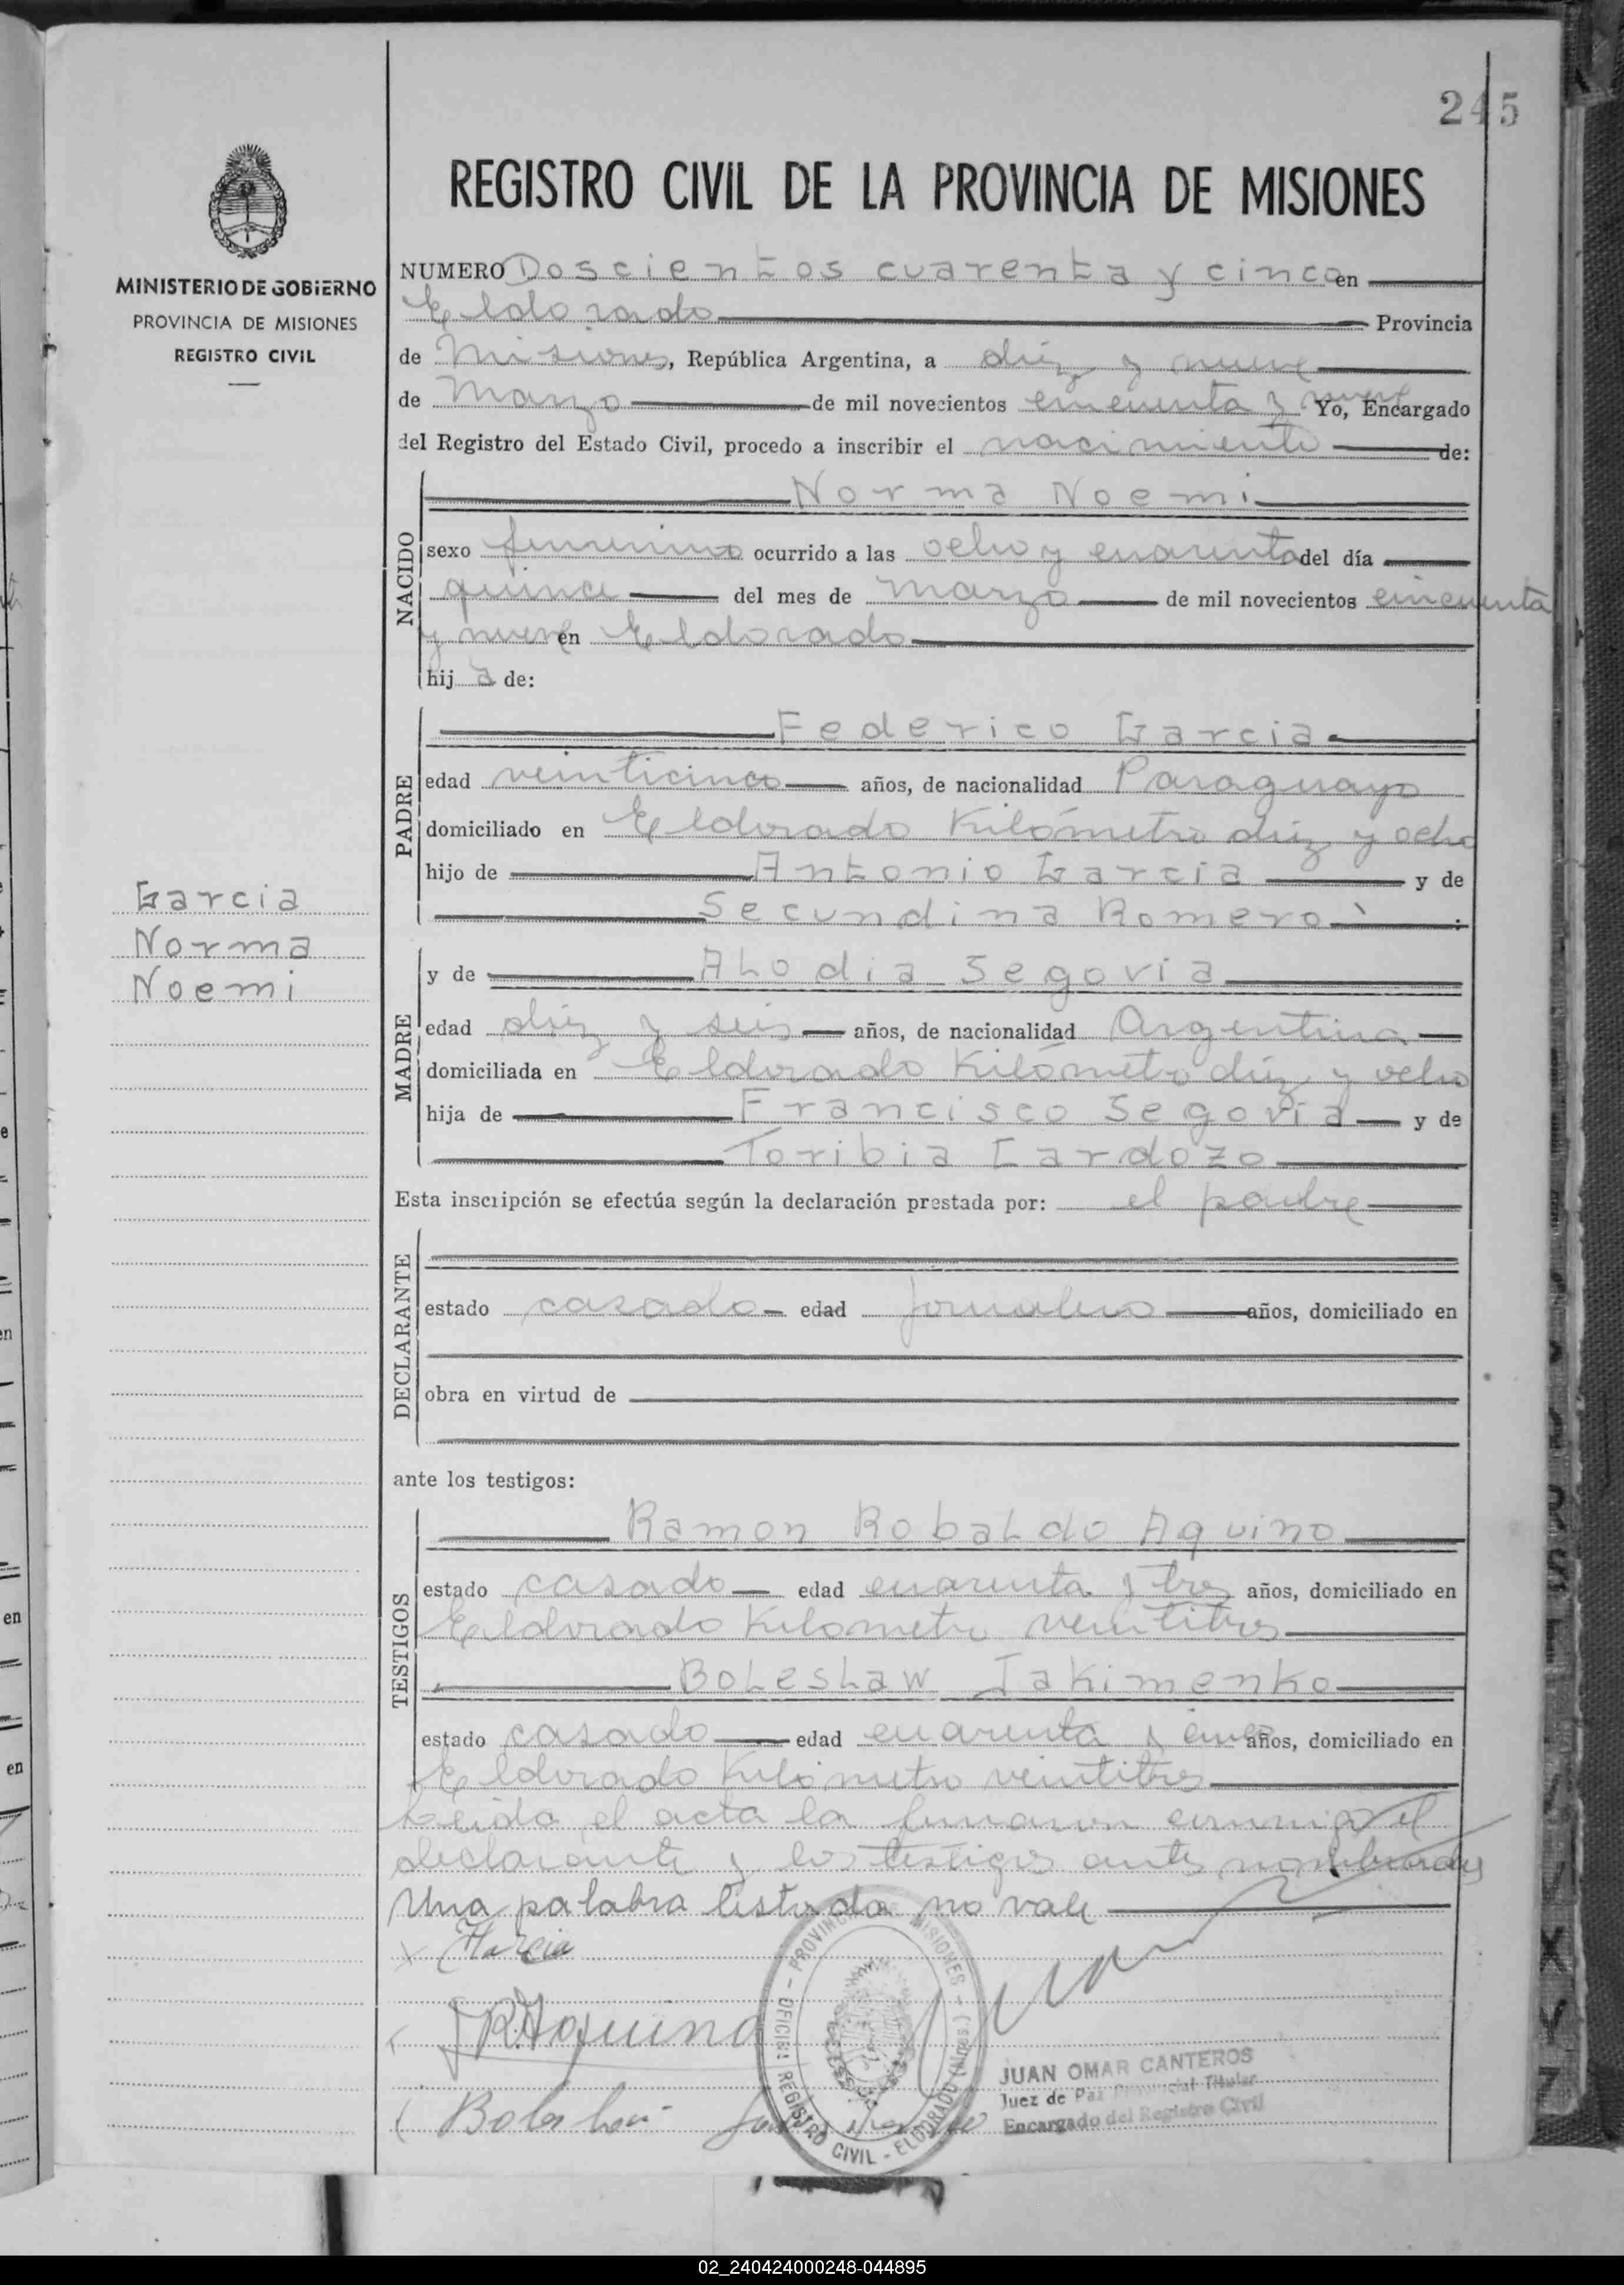 245
REGISTRO CIVIL DE LA PROVINCIA DE MISIONES
MINISTERIO DE GOBIERNO
PROVINCIA DE MISIONES
REGISTRO CIVIL
NUMERO Doscientos cuarenta y cinco en
Eldorado Provincia
de Misiones, República Argentina, a diez y nueve
de Marzo de mil novecientos cincuenta y nueve Yo, Encargado
del Registro del Estado Civil, procedo a inscribir el nacimiento de:
NACIDO
Norma Noemi
sexo femenino ocurrido a las ocho y cuarenta del día
quince del mes de marzo de mil novecientos cincuenta
y nueve en Eldorado
hij a de:
PADRE
Federico Garcia
edad veinticinco años, de nacionalidad Paraguayo
domiciliado en Eldorado Kilómetro diez y ocho
hijo de Antonio Garcia y de
Secundina Romero
Garcia
Norma
Noemi
MADRE
y de Alodia Segovia
edad diez y seis años, de nacionalidad Argentina
domiciliada en Eldorado Kilómetro diez y ocho
hija de Francisco Segovia y de
Toribia Cardozo
Esta inscripción se efectúa según la declaración prestada por: el padre
DECLARANTE
estado casado edad jornalero años, domiciliado en
obra en virtud de
ante los testigos:
TESTIGOS
Ramon Robaldo Aquino
estado casado edad cuarenta y tres años, domiciliado en
Eldorado Kilometro veintitres
Boleslaw Iakimenko
estado casado edad cuarenta y cinco años, domiciliado en
Eldorado Kilómetro veintitres
Leida el acta la firmaron conmigo el
declarante y los testigos antes nombrados
Una palabra testada no vale
x Garcia
RAquino
PROVINCIA DE MISIONES - OFICIAL REGISTRO CIVIL - ELDORADO (Mnes.)
JUAN OMAR CANTEROS
Juez de Paz Provincial Titular
Encargado del Registro Civil
02_240424000248-044895